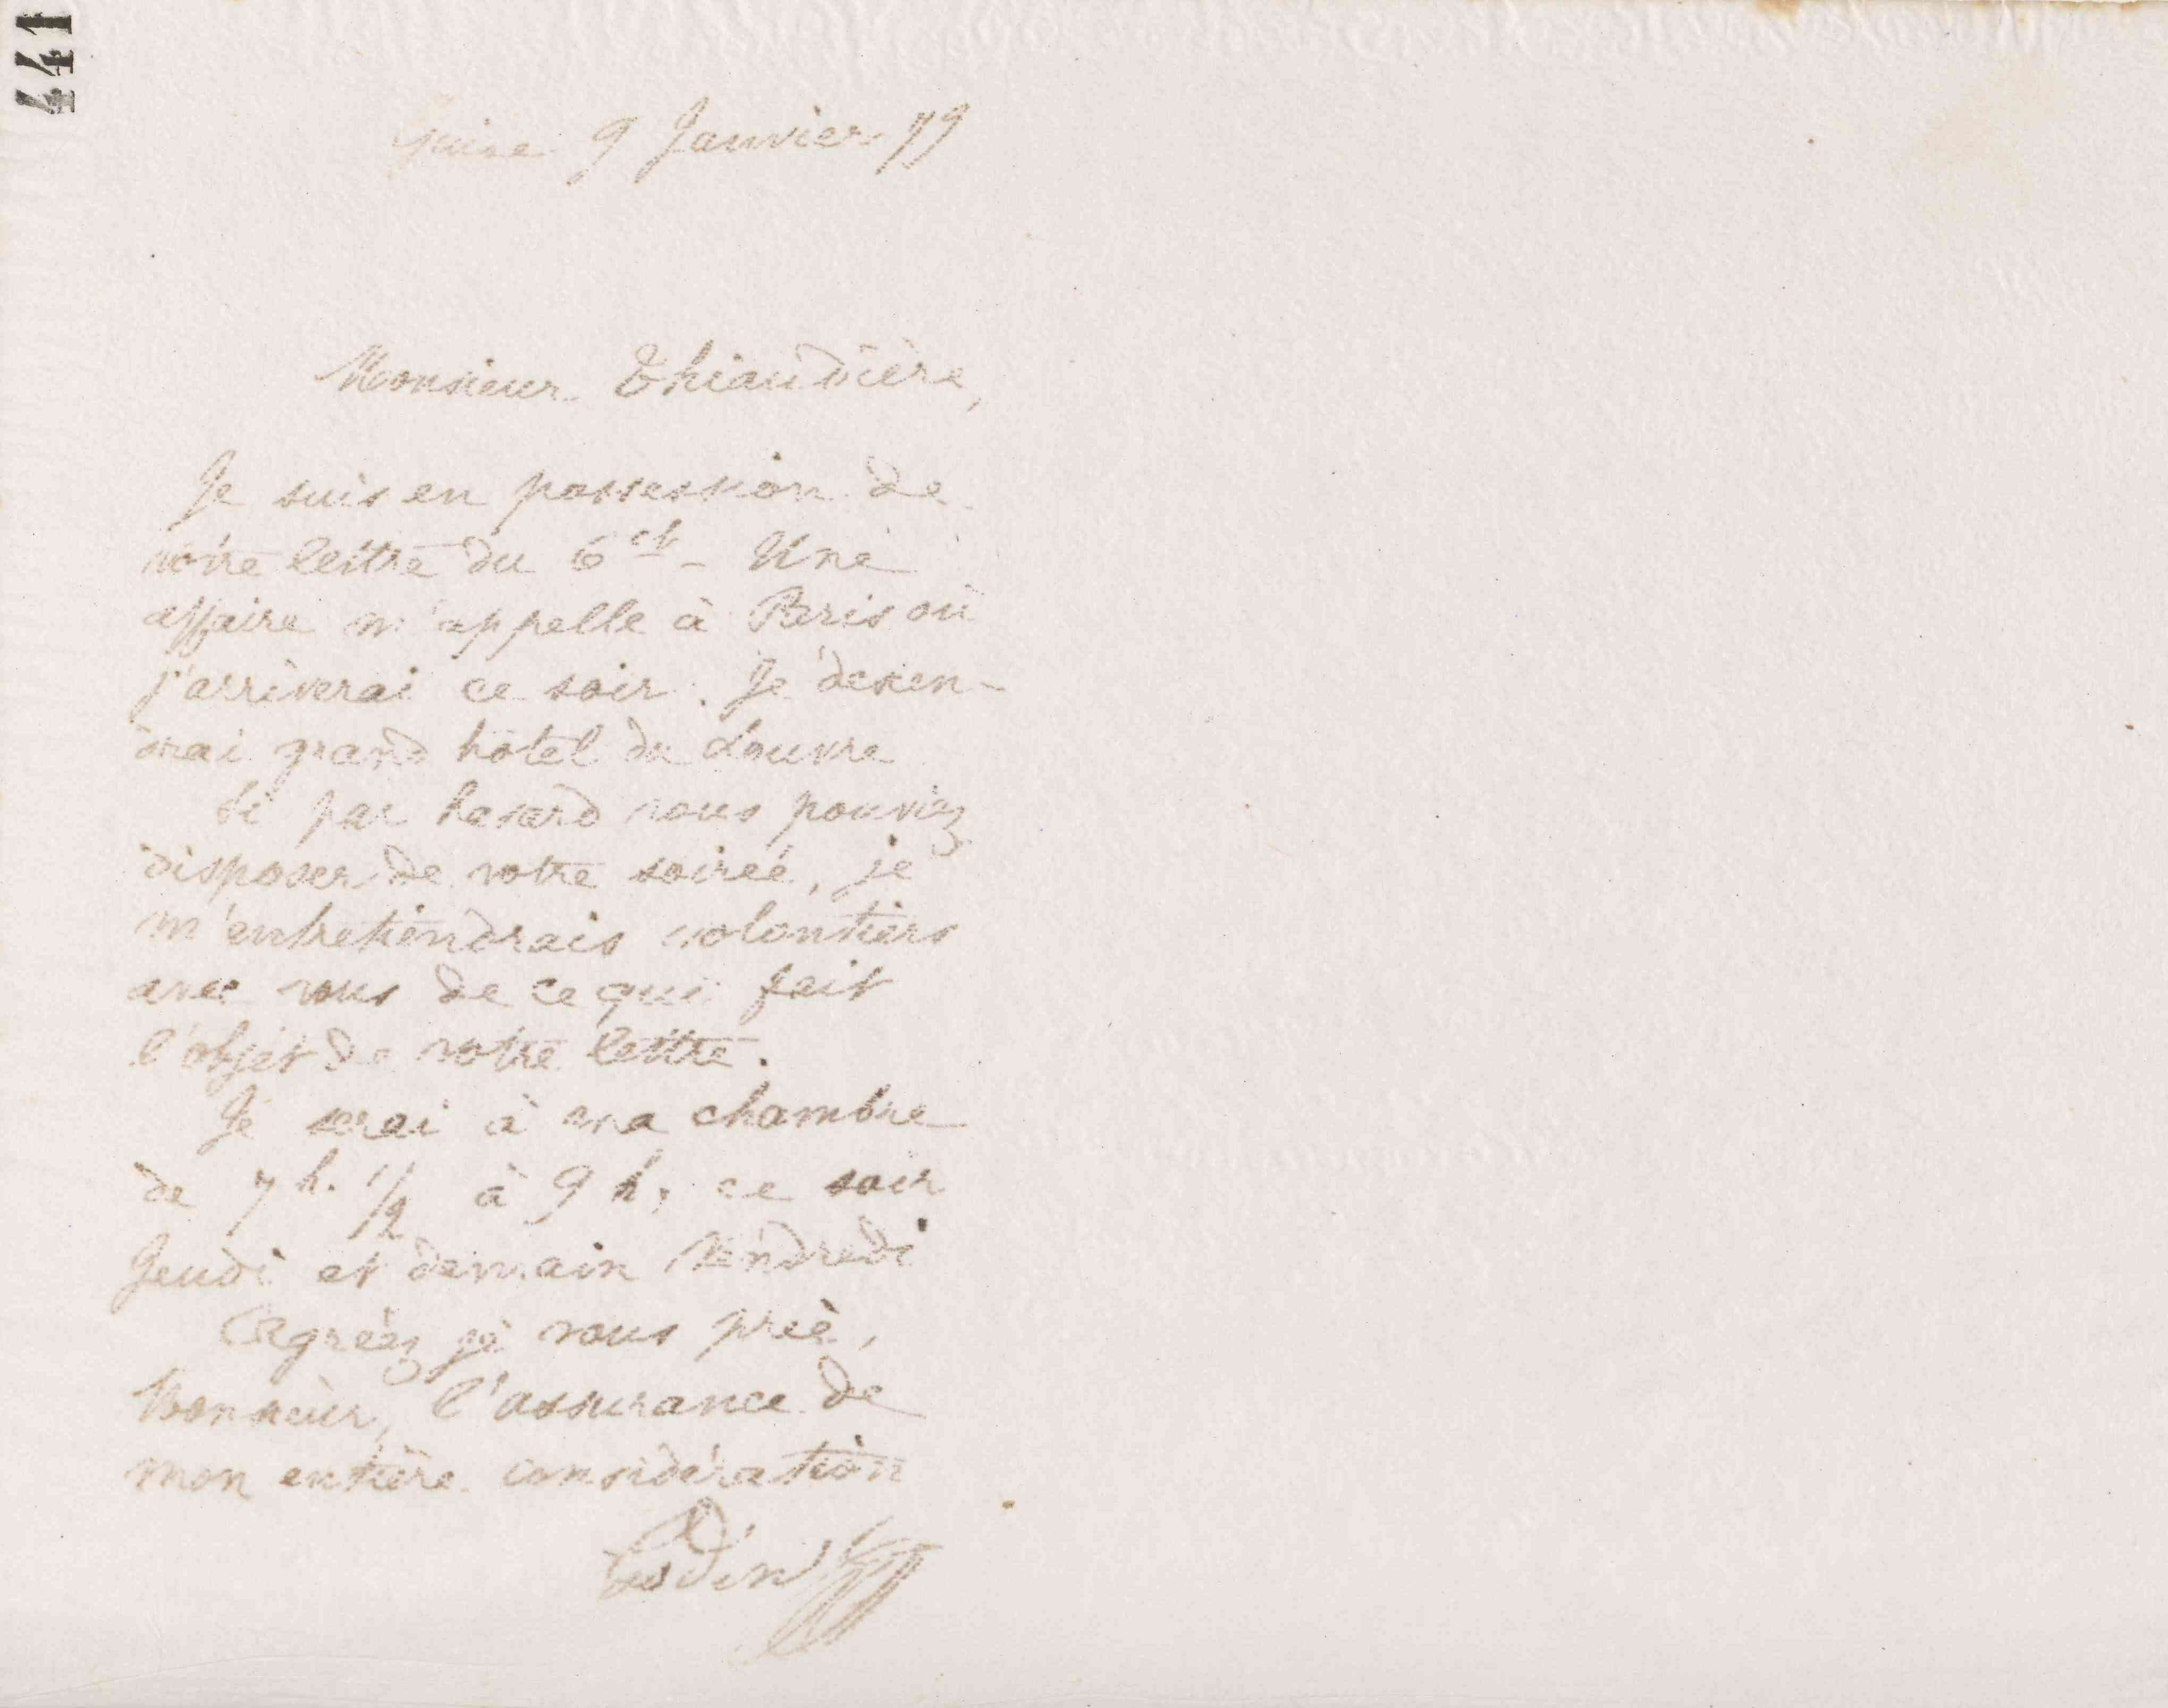 147
Guise 9 Janvier 79
Monsieur Thiaudière,
Je suis en possession de
votre lettre du 6 ct - Une
affaire m'appelle à Paris où
j'arriverai ce soir. Je descen-
drai grand hôtel du Louvre
Si par hasard vous pouviez
disposer de votre soirée, je
m'entretiendrais volontiers
avec vous de ce qui fait
l'objet de votre lettre.
Je serai à ma chambre
de 7 h. 1/2 à 9 h, ce soir
Jeudi et demain Vendredi
Agréez je vous prie,
Monsieur, l'assurance de
mon entière considération
Godin